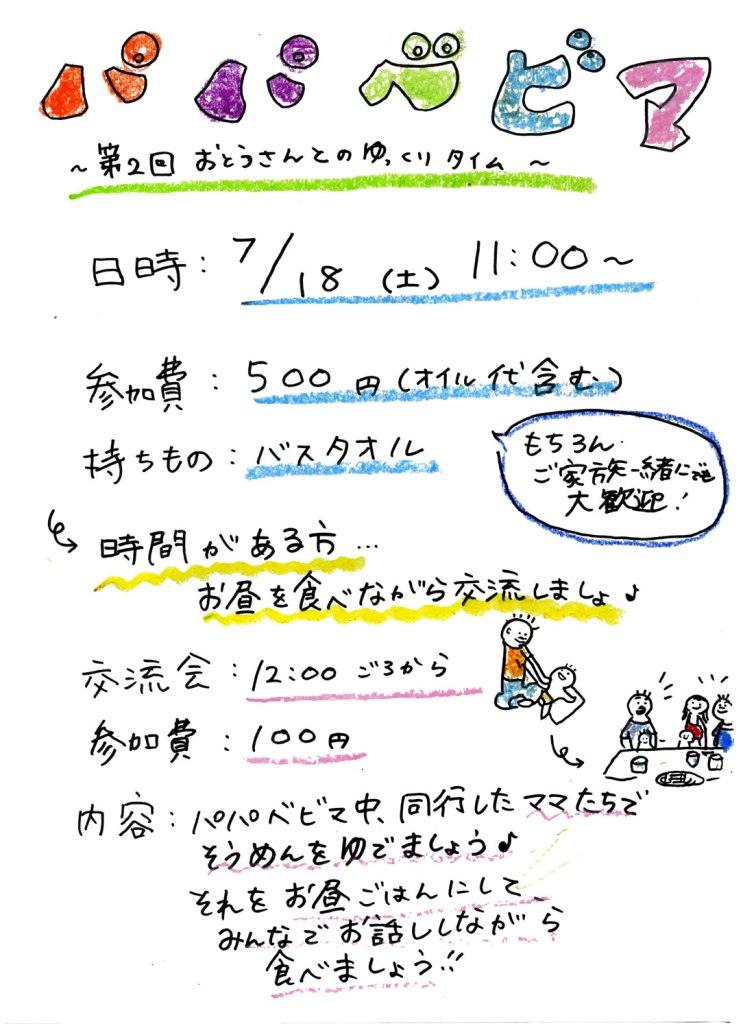 パパベビマ
~第2回 おとうさんとのゆっくりタイム~
日時: 7/18 (土) 11:00~
参加費: 500円(オイル代含む)
持ちもの: バスタオル
もちろん
ご家族一緒にでも
大歓迎!
時間がある方…
お昼を食べながら交流しましょ♪
交流会: 12:00ごろから
参加費: 100円
内容: パパベビマ中、同行したママたちで
そうめんをゆでましょう♪
それをお昼ごはんにして、
みんなでお話ししながら
食べましょう!!